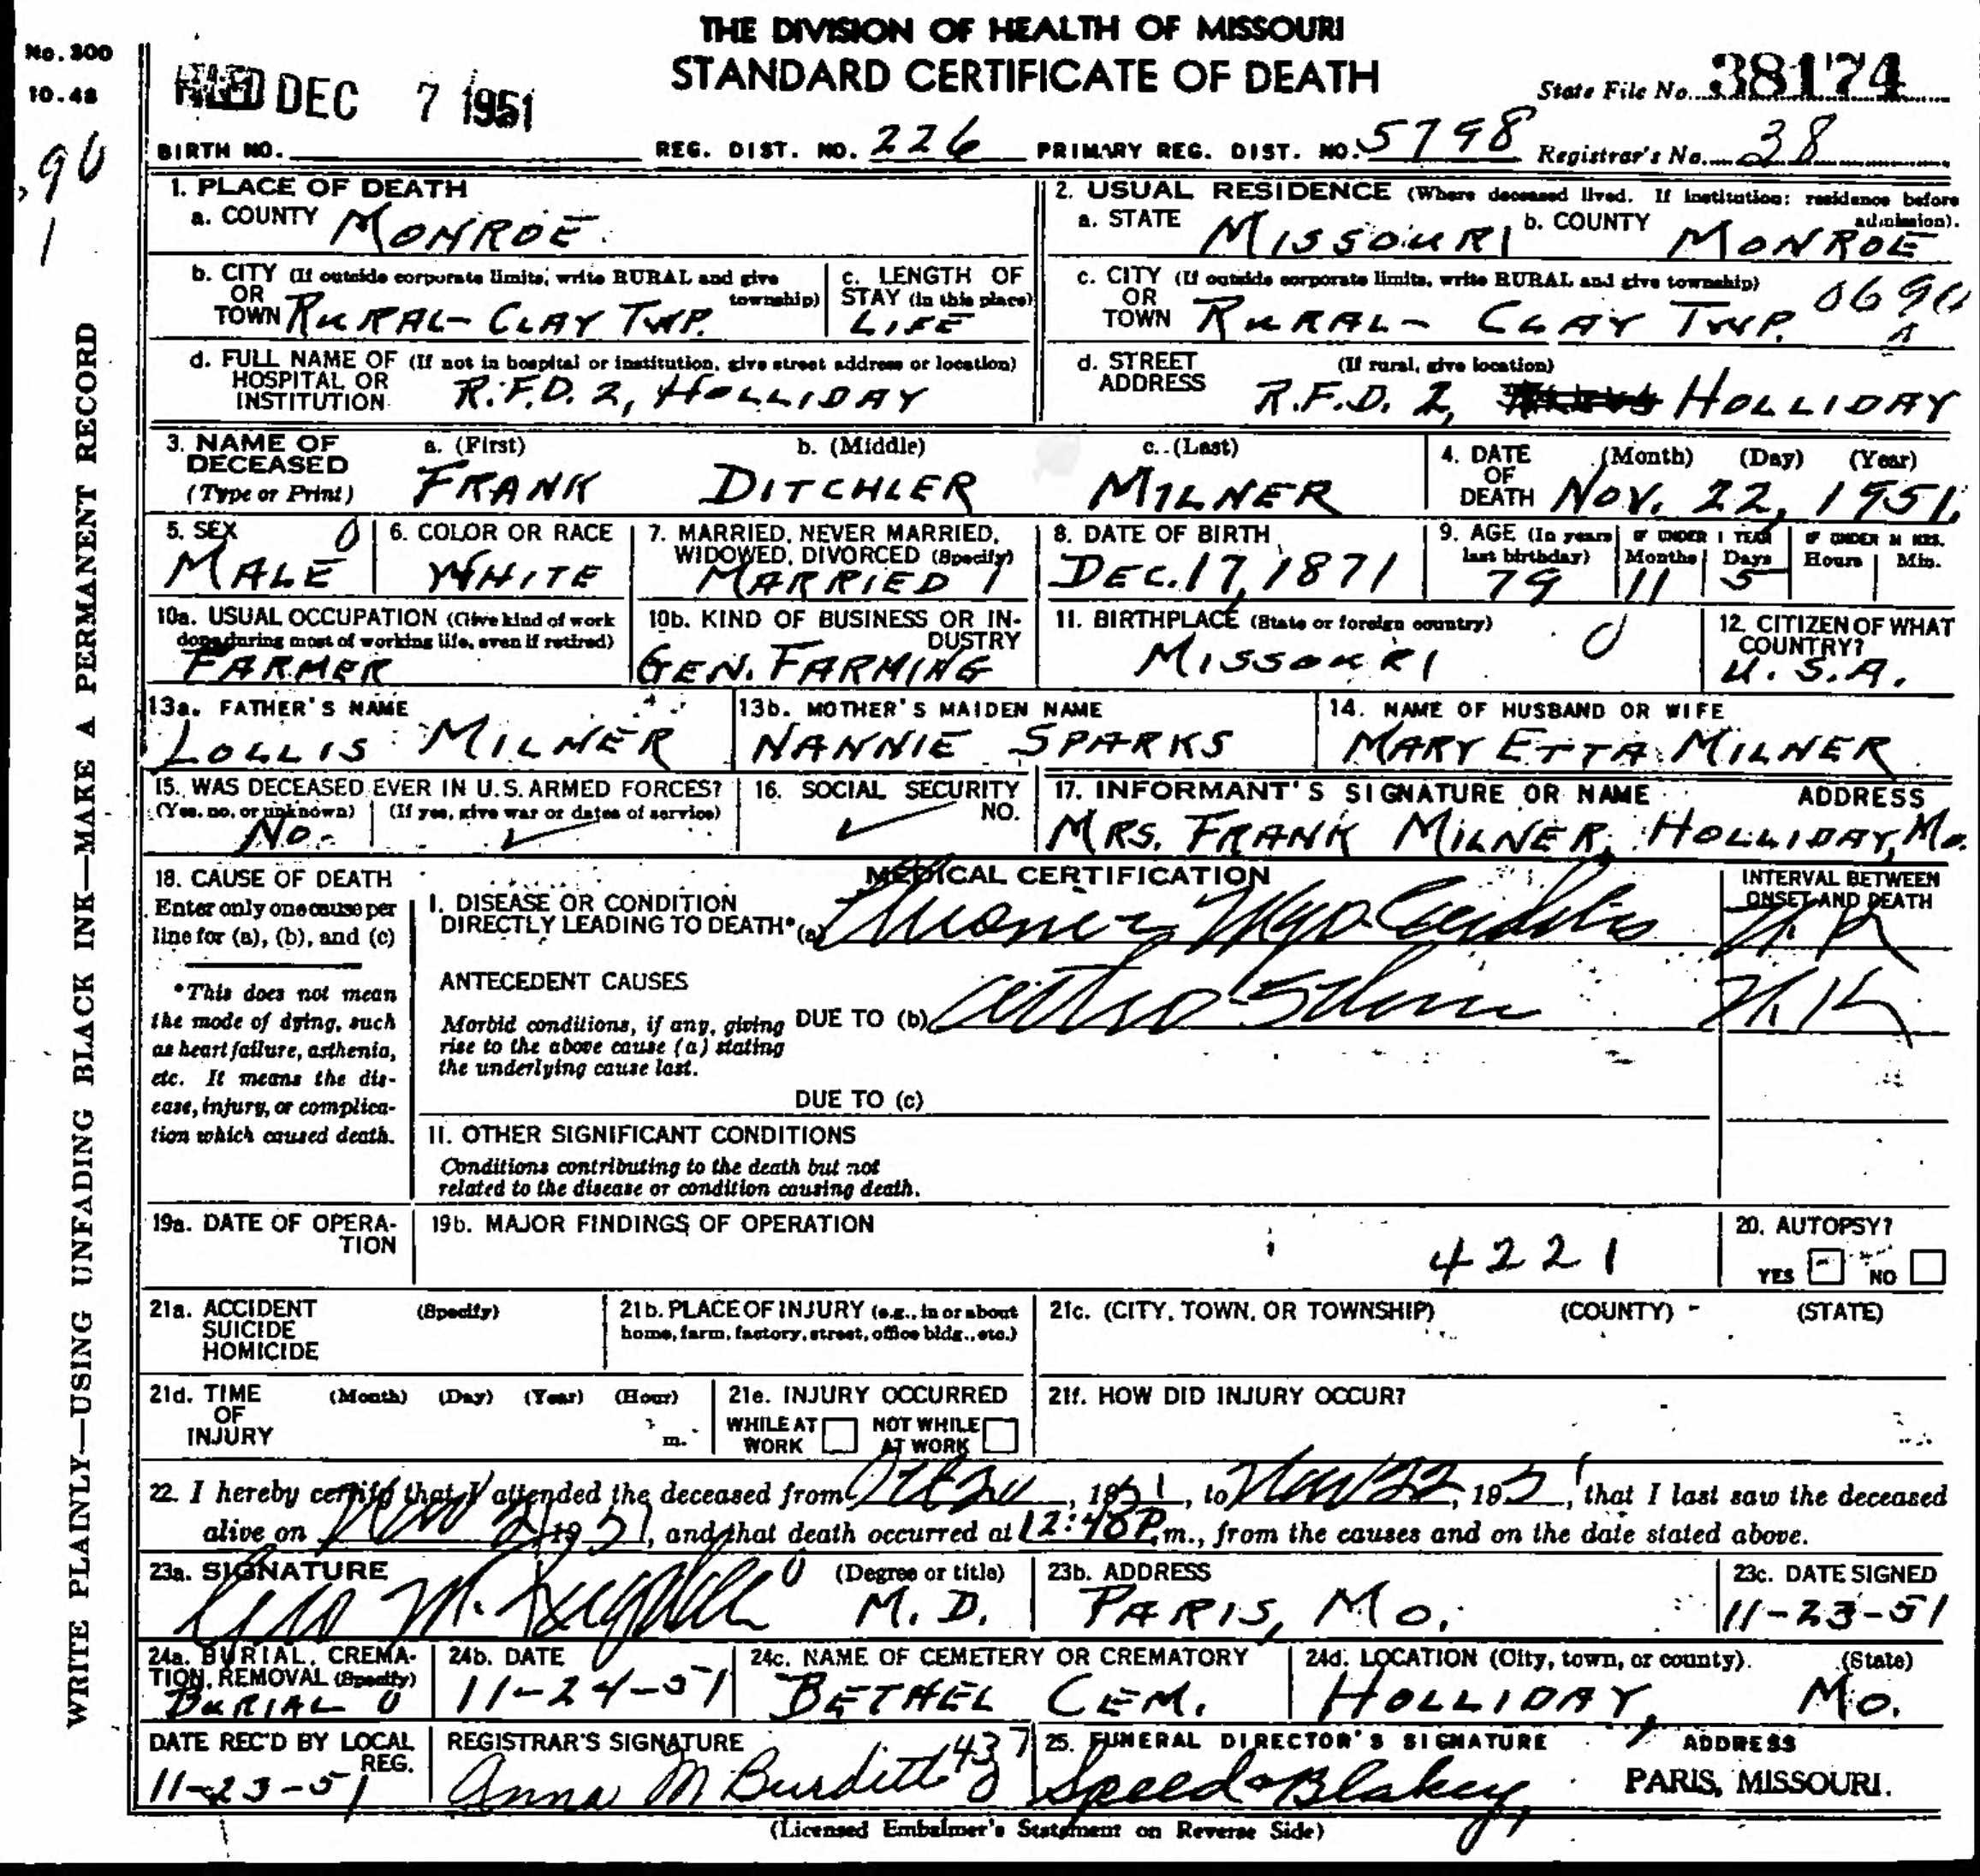 THE DIVISION OF HEALTH OF MISSOURI
STANDARD CERTIFICATE OF DEATH
No. 300
10.48
FILED DEC 7 1951
State File No. 38174
BIRTH NO. REG. DIST. NO. 226 PRIMARY REG. DIST. NO. 5798 Registrar's No. 38
WRITE PLAINLY—USING UNFADING BLACK INK—MAKE A PERMANENT RECORD
1. PLACE OF DEATH
a. COUNTY MONROE
b. CITY (If outside corporate limits, write RURAL and give township)
OR TOWN RURAL- CLAY TWP.
c. LENGTH OF STAY (in this place)
LIFE
d. FULL NAME OF HOSPITAL OR INSTITUTION (If not in hospital or institution, give street address or location)
R.F.D. 2, HOLLIDAY
2. USUAL RESIDENCE (Where deceased lived. If institution: residence before admission).
a. STATE MISSOURI b. COUNTY MONROE
c. CITY (If outside corporate limits, write RURAL and give township)
OR TOWN RURAL- CLAY TWP.
d. STREET ADDRESS (If rural, give location)
R.F.D. 2, HOLLIDAY
3. NAME OF DECEASED (Type or Print)
a. (First) b. (Middle) c. (Last)
FRANK DITCHLER MILNER
4. DATE OF DEATH (Month) (Day) (Year)
NOV. 22, 1951
5. SEX
MALE
6. COLOR OR RACE
WHITE
7. MARRIED, NEVER MARRIED, WIDOWED, DIVORCED (Specify)
MARRIED 1
8. DATE OF BIRTH
DEC. 17, 1871
9. AGE (In years last birthday) IF UNDER 1 YEAR Months Days IF UNDER 24 HRS. Hours Min.
79 11 5
10a. USUAL OCCUPATION (Give kind of work done during most of working life, even if retired)
FARMER
10b. KIND OF BUSINESS OR INDUSTRY
GEN. FARMING
11. BIRTHPLACE (State or foreign country)
MISSOURI
12. CITIZEN OF WHAT COUNTRY?
U.S.A.
13a. FATHER'S NAME
LOLLIS MILNER
13b. MOTHER'S MAIDEN NAME
NANNIE SPARKS
14. NAME OF HUSBAND OR WIFE
MARY ETTA MILNER
15. WAS DECEASED EVER IN U.S. ARMED FORCES?
(Yes, no, or unknown) (If yes, give war or dates of service)
NO.
16. SOCIAL SECURITY NO.
17. INFORMANT'S SIGNATURE OR NAME ADDRESS
MRS. FRANK MILNER, HOLLIDAY, MO.
18. CAUSE OF DEATH
Enter only one cause per line for (a), (b), and (c)
*This does not mean the mode of dying, such as heart failure, asthenia, etc. It means the disease, injury, or complication which caused death.
MEDICAL CERTIFICATION
INTERVAL BETWEEN ONSET AND DEATH
I. DISEASE OR CONDITION DIRECTLY LEADING TO DEATH* (a) Chronic Myocarditis
ANTECEDENT CAUSES
Morbid conditions, if any, giving rise to the above cause (a) stating the underlying cause last.
DUE TO (b)
DUE TO (c)
II. OTHER SIGNIFICANT CONDITIONS
Conditions contributing to the death but not related to the disease or condition causing death.
19a. DATE OF OPERATION
19b. MAJOR FINDINGS OF OPERATION
4221
20. AUTOPSY?
YES NO
21a. ACCIDENT SUICIDE HOMICIDE (Specify)
21b. PLACE OF INJURY (e.g., in or about home, farm, factory, street, office bldg., etc.)
21c. (CITY, TOWN, OR TOWNSHIP) (COUNTY) (STATE)
21d. TIME OF INJURY (Month) (Day) (Year) (Hour) m.
21e. INJURY OCCURRED
WHILE AT WORK NOT WHILE AT WORK
21f. HOW DID INJURY OCCUR?
22. I hereby certify that I attended the deceased from , 1951, to Nov 22, 195, that I last saw the deceased
alive on Nov 21, 1951, and that death occurred at 12:40 P.m., from the causes and on the date stated above.
23a. SIGNATURE (Degree or title)
M.D.
23b. ADDRESS
PARIS, MO.
23c. DATE SIGNED
11-23-51
24a. BURIAL, CREMATION, REMOVAL (Specify)
BURIAL
24b. DATE
11-24-51
24c. NAME OF CEMETERY OR CREMATORY
BETHEL CEM.
24d. LOCATION (City, town, or county) (State)
HOLLIDAY, MO.
DATE REC'D BY LOCAL REG.
11-23-51
REGISTRAR'S SIGNATURE
Anna M Burditt
25. FUNERAL DIRECTOR'S SIGNATURE ADDRESS
Speed & Blakey, PARIS, MISSOURI.
(Licensed Embalmer's Statement on Reverse Side)